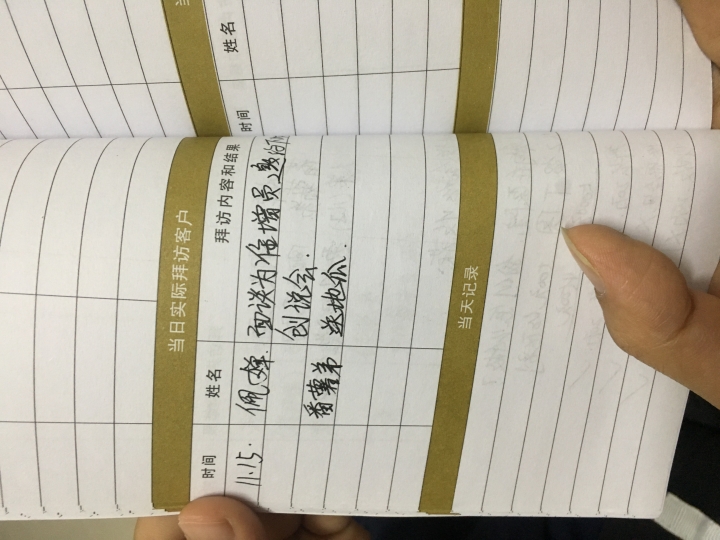 姓名
时间
当日实际拜访客户
时间 姓名 拜访内容和结果
11.15. 佩 面谈为准增员邀约下
创说会.
番薯弟 送地瓜.
当天记录